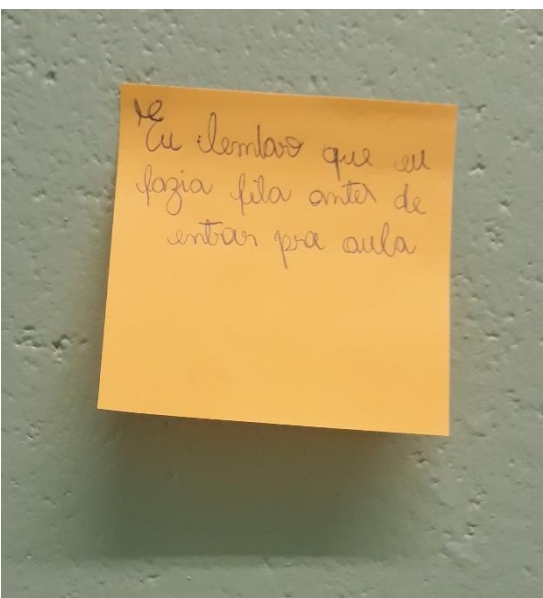 Eu lembro que eu
fazia fila antes de
entrar pra aula